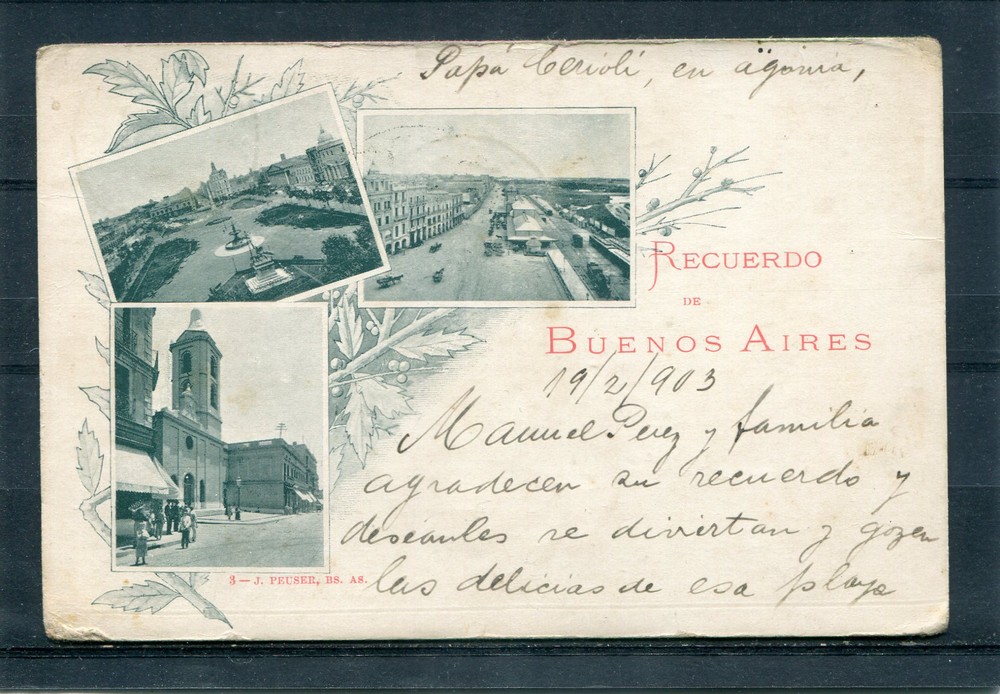 Papá Cerioli, en agonia,
RECUERDO
DE
BUENOS AIRES
19/2/903
Manuel Perez y familia
agradecen su recuerdo y
deseánles se diviertan y gozen
las delicias de esa playa
3 — J. PEUSER, BS. AS.